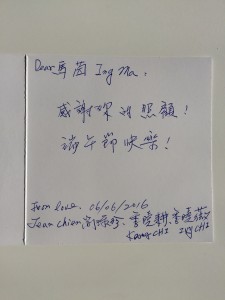 Dear 馬茵 Ing Ma,
感謝深的照顧!
端午節快樂!
From love. 06/06/2016
Jean Chien 季曉耕、季曉薇
Kang CHI Ivy CHI